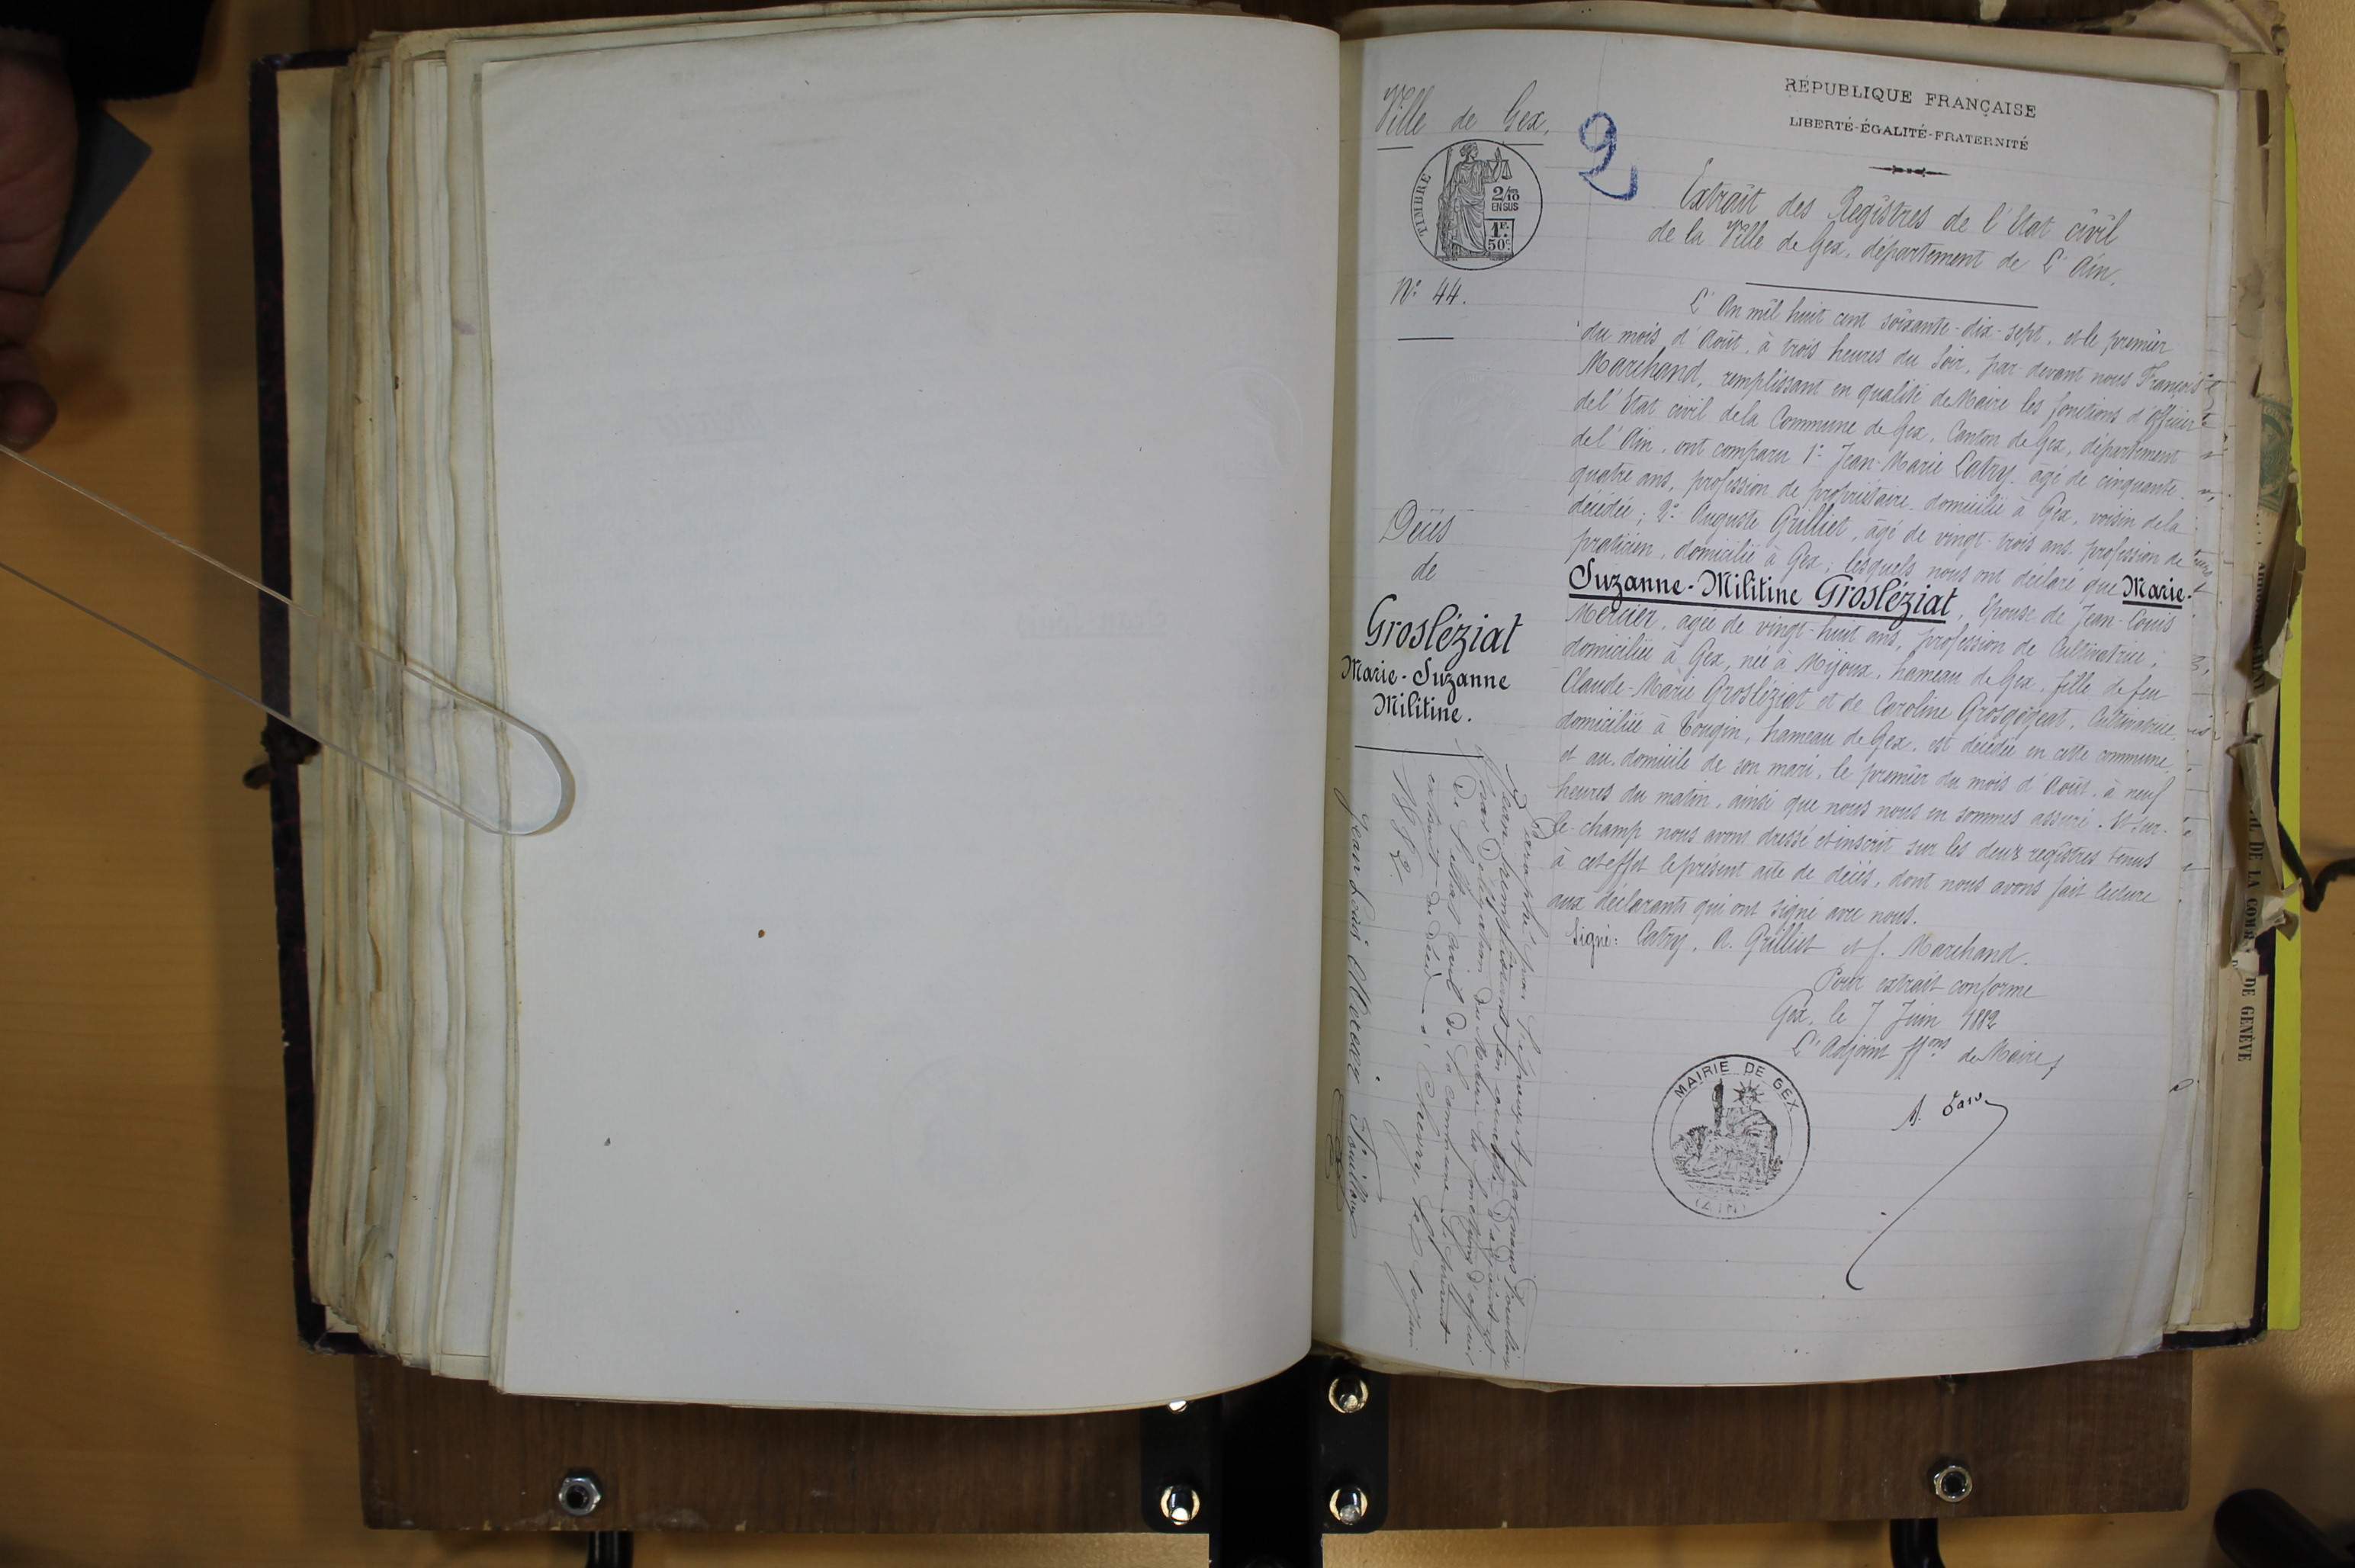 Ville de Gex,
TIMBRE
2/10
EN SUS
1F.
50c
N° 44.
2
RÉPUBLIQUE FRANÇAISE
LIBERTÉ-ÉGALITÉ-FRATERNITÉ
Extrait des Registres de l'Etat civil
de la Ville de Gex, département de l'Ain.
L'An mil huit cent soixante-dix-sept, et le premier
du mois d'Août, à trois heures du Soir, par devant nous François
Marchand, remplissant en qualité de Maire les fonctions d'Officier
de l'Etat civil de la Commune de Gex, Canton de Gex, département
de l'Ain, ont comparu 1° Jean-Marie Catry, âgé de cinquante-
quatre ans, profession de propriétaire, domicilié à Gex, voisin de la
décédée; 2° Auguste Grilliet, âgé de vingt-trois ans, profession de
praticien, domicilié à Gex; lesquels nous ont déclaré que Marie-
Suzanne-Militine Grosléziat, Epouse de Jean-Louis
Mercier, âgée de vingt-huit ans, profession de Cultivatrice;
domiciliée à Gex, née à Mijoux, hameau de Gex, fille de feu
Claude-Marie Grosléziat et de Caroline Grosgogeat, Cultivatrice,
domiciliée à Tougin, hameau de Gex, est décédée en cette commune
et au domicile de son mari, le premier du mois d'Août, à neuf
heures du matin, ainsi que nous nous en sommes assuré. Et sur-
le-champ nous avons dressé et inscrit sur les deux registres tenus
à cet effet le présent acte de décès, dont nous avons fait lecture
aux déclarants qui ont signé avec nous.
Signé: Catry, A. Grilliet et f. Marchand.
Pour extrait conforme
Gex, le 7 Juin 1882
L'Adjoint ff.ons de Maire,
MAIRIE DE GEX
(AIN)
Décès
de
Grosléziat
Marie-Suzanne
Militine.
Paraphé par le préposé et par nous
Jean premier Adjoint et
par Délégation du Maire les fonctions d'officier
De l'état civil de la commune le présent
extrait de décès a Chevry, le
1882
Jean Louis Mercier
DE LA COUR DE GENÈVE